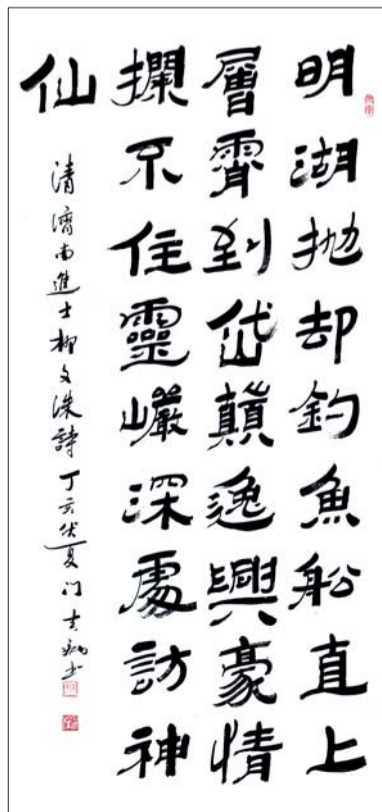 明湖抛却釣魚船直上
層霄到岱顛逸興豪情
攔不住靈巗深處訪神
仙
清濟南進士柳文洙詩 丁亥伏夏 门吉书